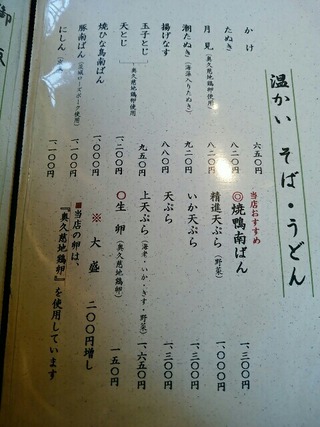 温かい そば・うどん
かけ 六五〇円
たぬき 八二〇円
月見(奥久慈地鶏卵使用) 八二〇円
潮たぬき(海藻入りたぬき) 九二〇円
揚げなす 八八〇円
玉子とじ 九五〇円
奥久慈地鶏卵使用
天とじ 一、二〇〇円
焼ひな鳥南ばん 一、〇〇〇円
豚南ばん(茨城ローズポーク使用) 一、二〇〇円
にしん 一、一〇〇円
当店おすすめ
◎焼鴨南ばん 一、三〇〇円
精進天ぷら(野菜) 一、〇〇〇円
いか天ぷら 一、三〇〇円
天ぷら 一、三〇〇円
上天ぷら(海老・いか・きす・野菜) 一、六五〇円
〇生卵(奥久慈地鶏卵) 一五〇円
※ 大盛 二〇〇円増し
■当店の卵は、
『奥久慈地鶏卵』を使用しています
御